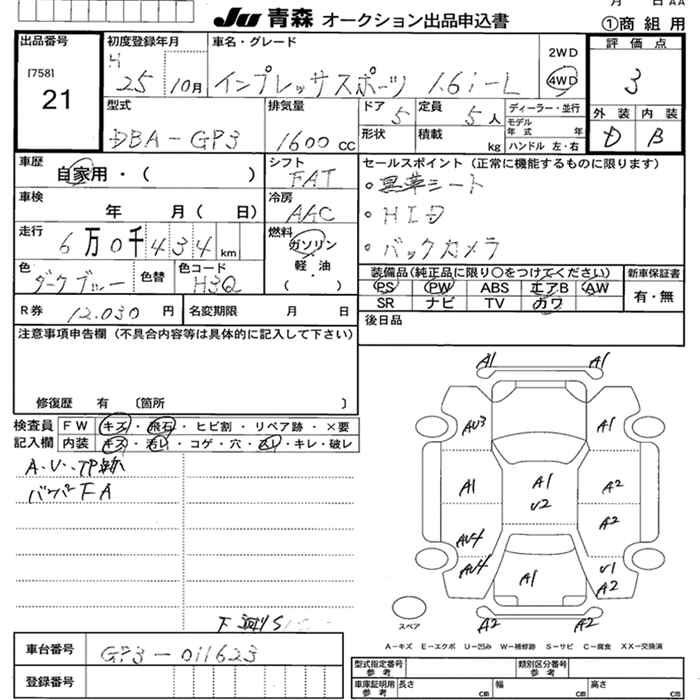 Ju 青森 オークション出品申込書
①商組用
出品番号
[758]
21
初度登録年月
H 25 10月
車名・グレード
インプレッサスポーツ 1.6i-L
2WD
4WD
評価点
3
外装 内装
D B
型式
DBA-GP3
排気量
1600 CC
ドア 5
定員 5人
形状
積載 kg
ディーラー・並行
モデル年式 年
ハンドル 左・右
車歴
自家用・( )
シフト
FAT
セールスポイント(正常に機能するものに限ります)
・黒革シート
・HID
・バックカメラ
車検
年 月( 日)
冷房
AAC
走行
6万0千434km
燃料
ガソリン
・
軽・油
( )
色
ダークブルー
色替
色コード
H3Q
装備品(純正品に限り○をつけてください)
PS PW ABS エアB AW
SR ナビ TV カワ
新車保証書
有・無
R券 12.030円
名変期限 月 日
後日品
注意事項申告欄(不具合内容等は具体的に記入して下さい)
修復歴 有 〔箇所 〕
検査員記入欄
FW キズ・飛石・ヒビ割・リペア跡・×要
内装 キズ・汚レ・コゲ・穴・スレ・キレ・破レ
A.U.
バンパーFA
A1 A1
AU3 A1
A1 A1 U2 A2
A2
AU4
AU4 A1 U1 A2
A2 A2
スペア
A-キズ E-エクボ U-凹み W-補修跡 S-サビ C-腐食 XX-交換済
車台番号
GP3-011623
登録番号
型式指定番号 参考
類別区分番号 参考
車庫証明用 参考
長さ cm 幅 cm 高さ cm